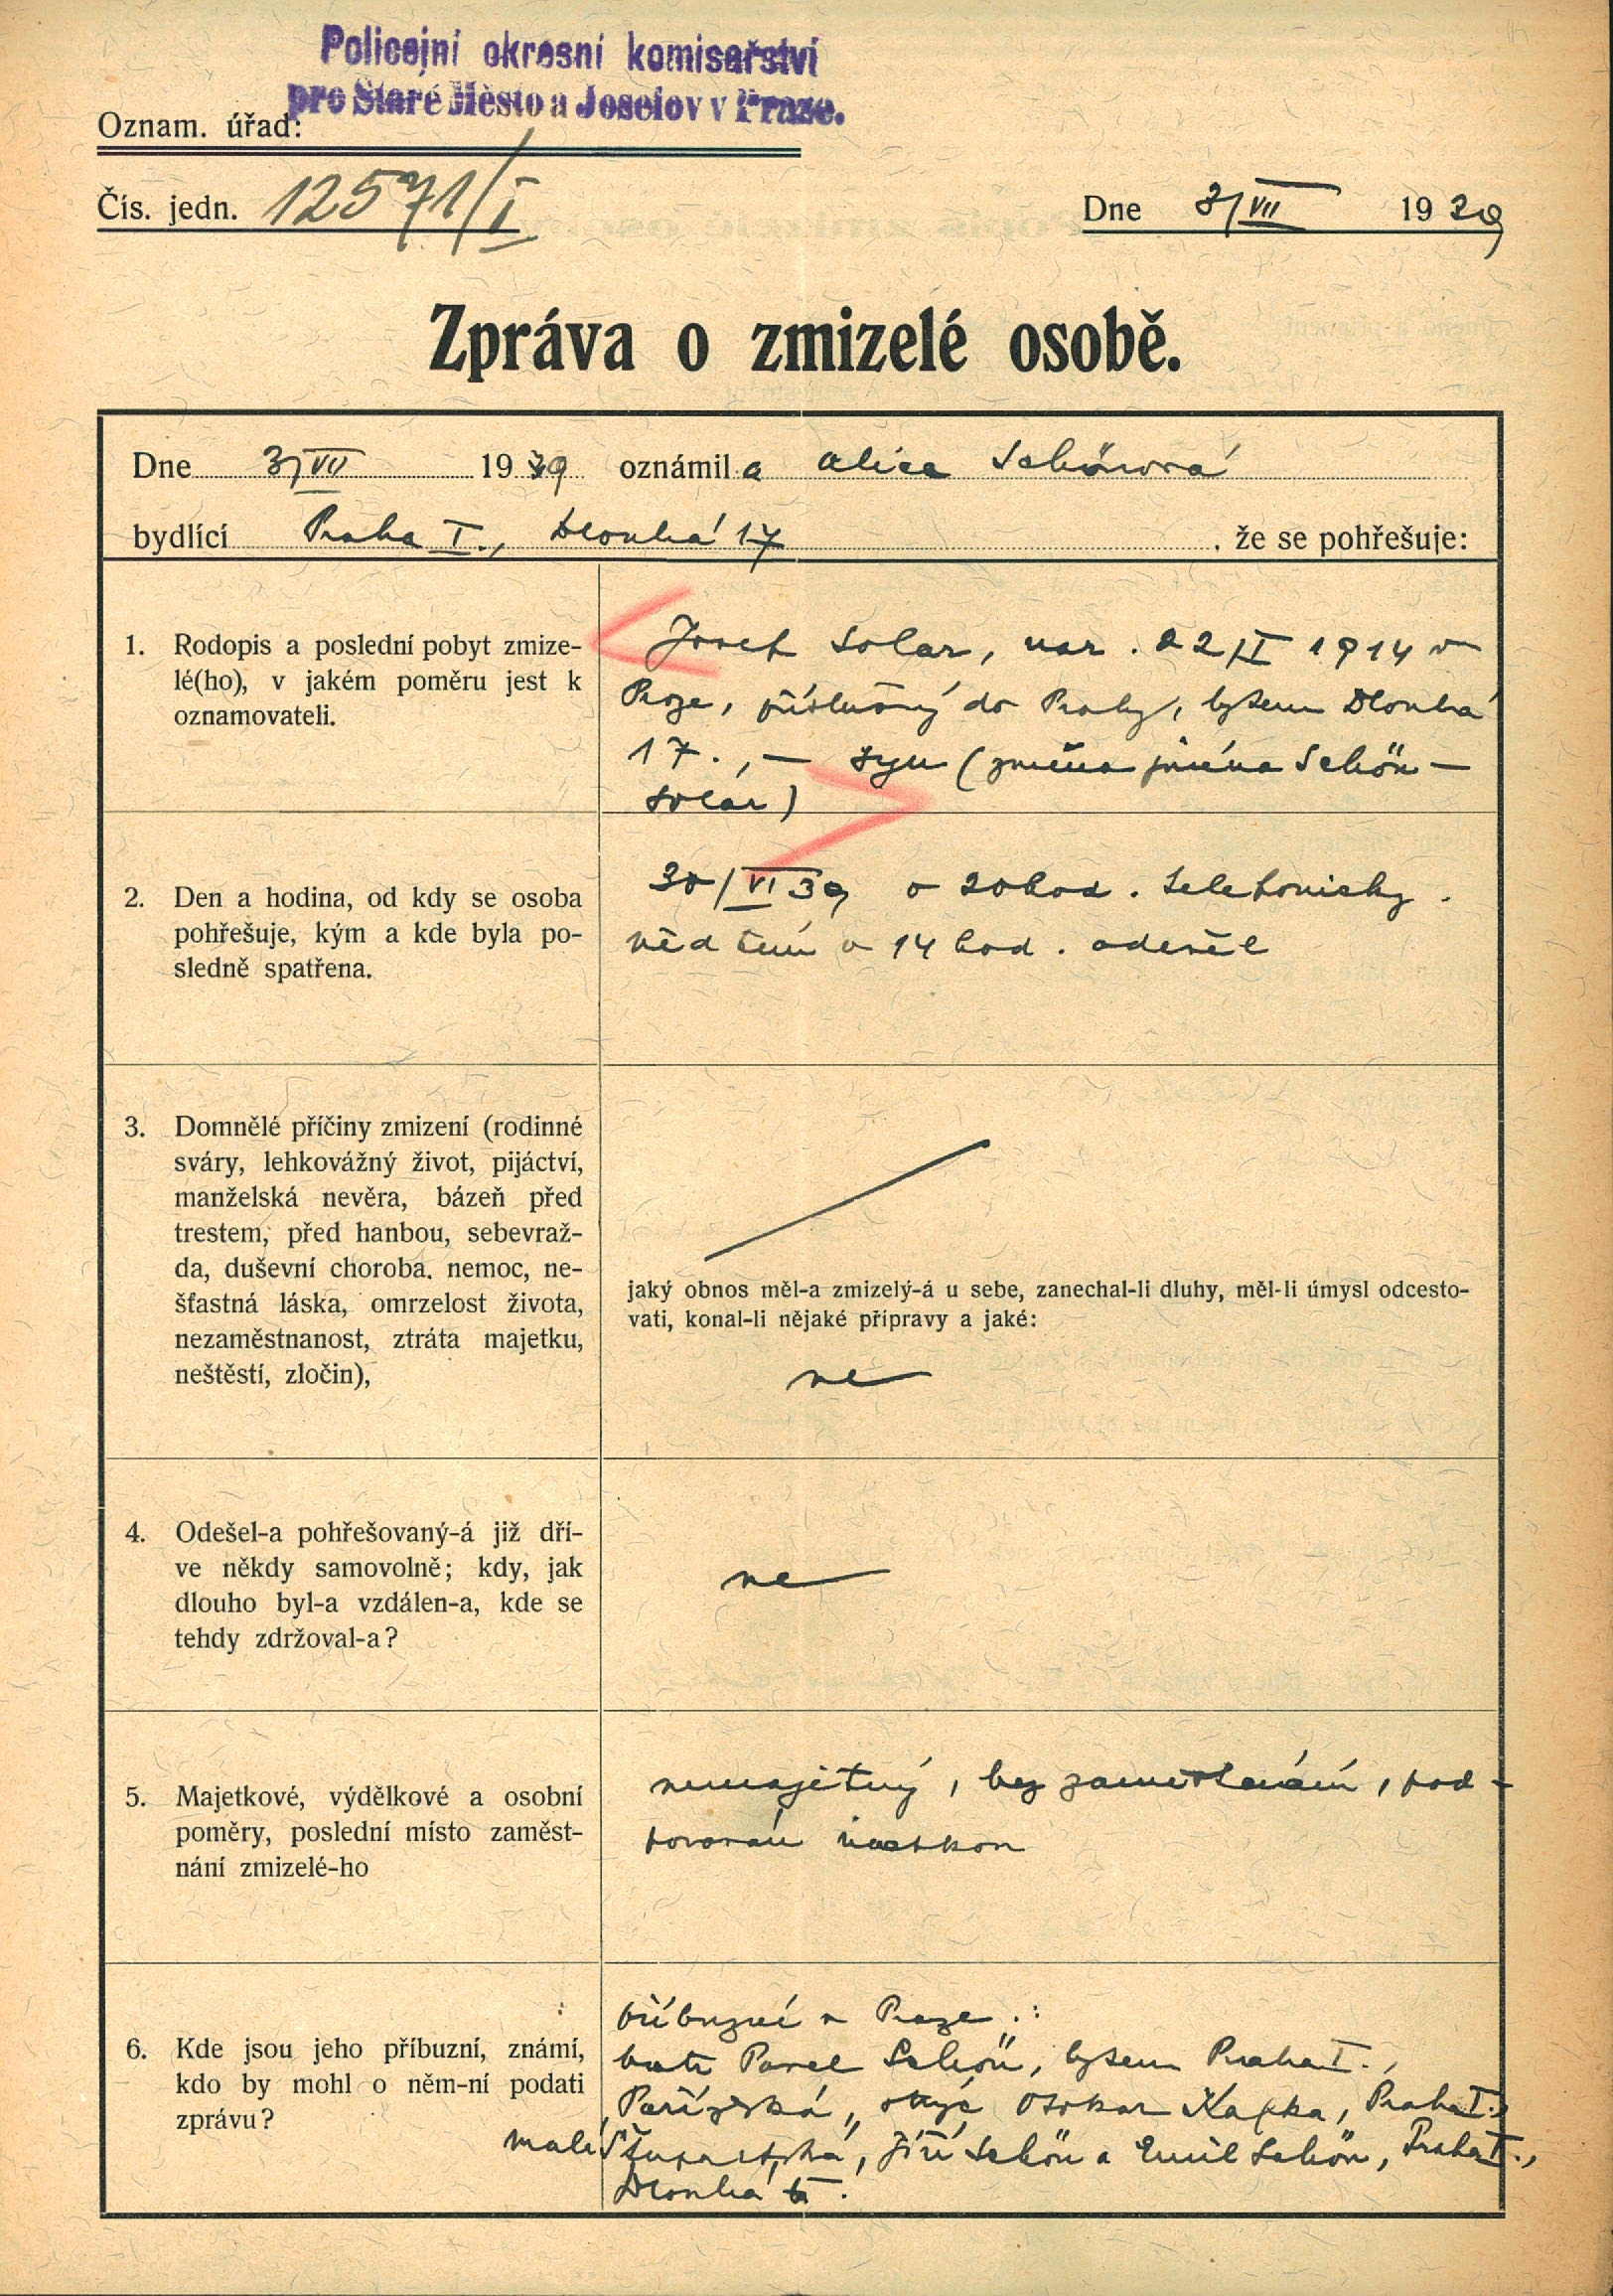 Policejní okresní komisařství
pro Staré Město a Josefov v Praze.
Oznam. úřad:
Čís. jedn. 12571/I
Dne 3/VII 1939
Zpráva o zmizelé osobě.
Dne 3/VII 1939 oznámil a Alice Schönová
bydlící Praha I., Dlouhá 17 , že se pohřešuje:
1. Rodopis a poslední pobyt zmize-
lé(ho), v jakém poměru jest k
oznamovateli.
Josef Solar, nar. 22/II 1914 v
Praze, příslušný do Prahy, bytem Dlouhá
17., – syn (změna jména Schön –
Solar)
2. Den a hodina, od kdy se osoba
pohřešuje, kým a kde byla po-
sledně spatřena.
30/VI 39 o 20 hod. telefonicky.
před tím v 14 hod. odešel
3. Domnělé příčiny zmizení (rodinné
sváry, lehkovážný život, pijáctví,
manželská nevěra, bázeň před
trestem, před hanbou, sebevraž-
da, duševní choroba. nemoc, ne-
šťastná láska, omrzelost života,
nezaměstnanost, ztráta majetku,
neštěstí, zločin),
jaký obnos měl-a zmizelý-á u sebe, zanechal-li dluhy, měl-li úmysl odcesto-
vati, konal-li nějaké přípravy a jaké:
ne
4. Odešel-a pohřešovaný-á již dří-
ve někdy samovolně; kdy, jak
dlouho byl-a vzdálen-a, kde se
tehdy zdržoval-a?
ne
5. Majetkové, výdělkové a osobní
poměry, poslední místo zaměst-
nání zmizelé-ho
nemajetný, bez zaměstnání, pod-
porován matkou
6. Kde jsou jeho příbuzní, známí,
kdo by mohl o něm-ní podati
zprávu?
příbuzní v Praze :
bratr Pavel Schön, bytem Praha I.,
Pařížská, strýc Otokar Kafka, Praha I.,
malá Štupartská, Jiří Schön a Emil Schön, Praha I.,
Dlouhá